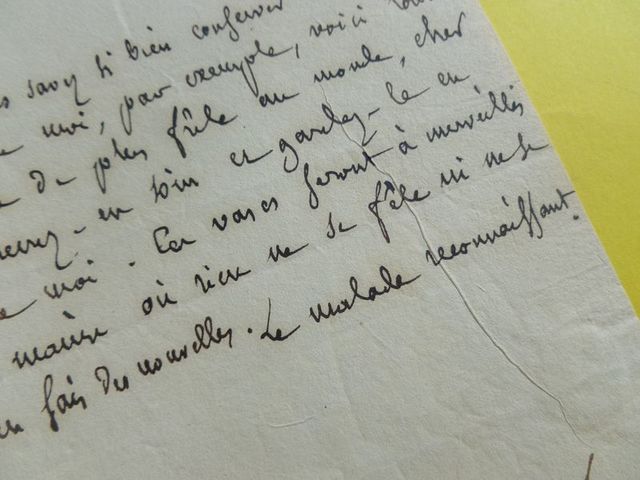 savez si bien conserver
moi, par exemple, voici
de plus fêle au monde, cher
en soin et gardez-le en
moi. Ces vases feront à merveilles
maison où rien ne se fêle ni ne se
fais des nouvelles. Le malade reconnaissant.